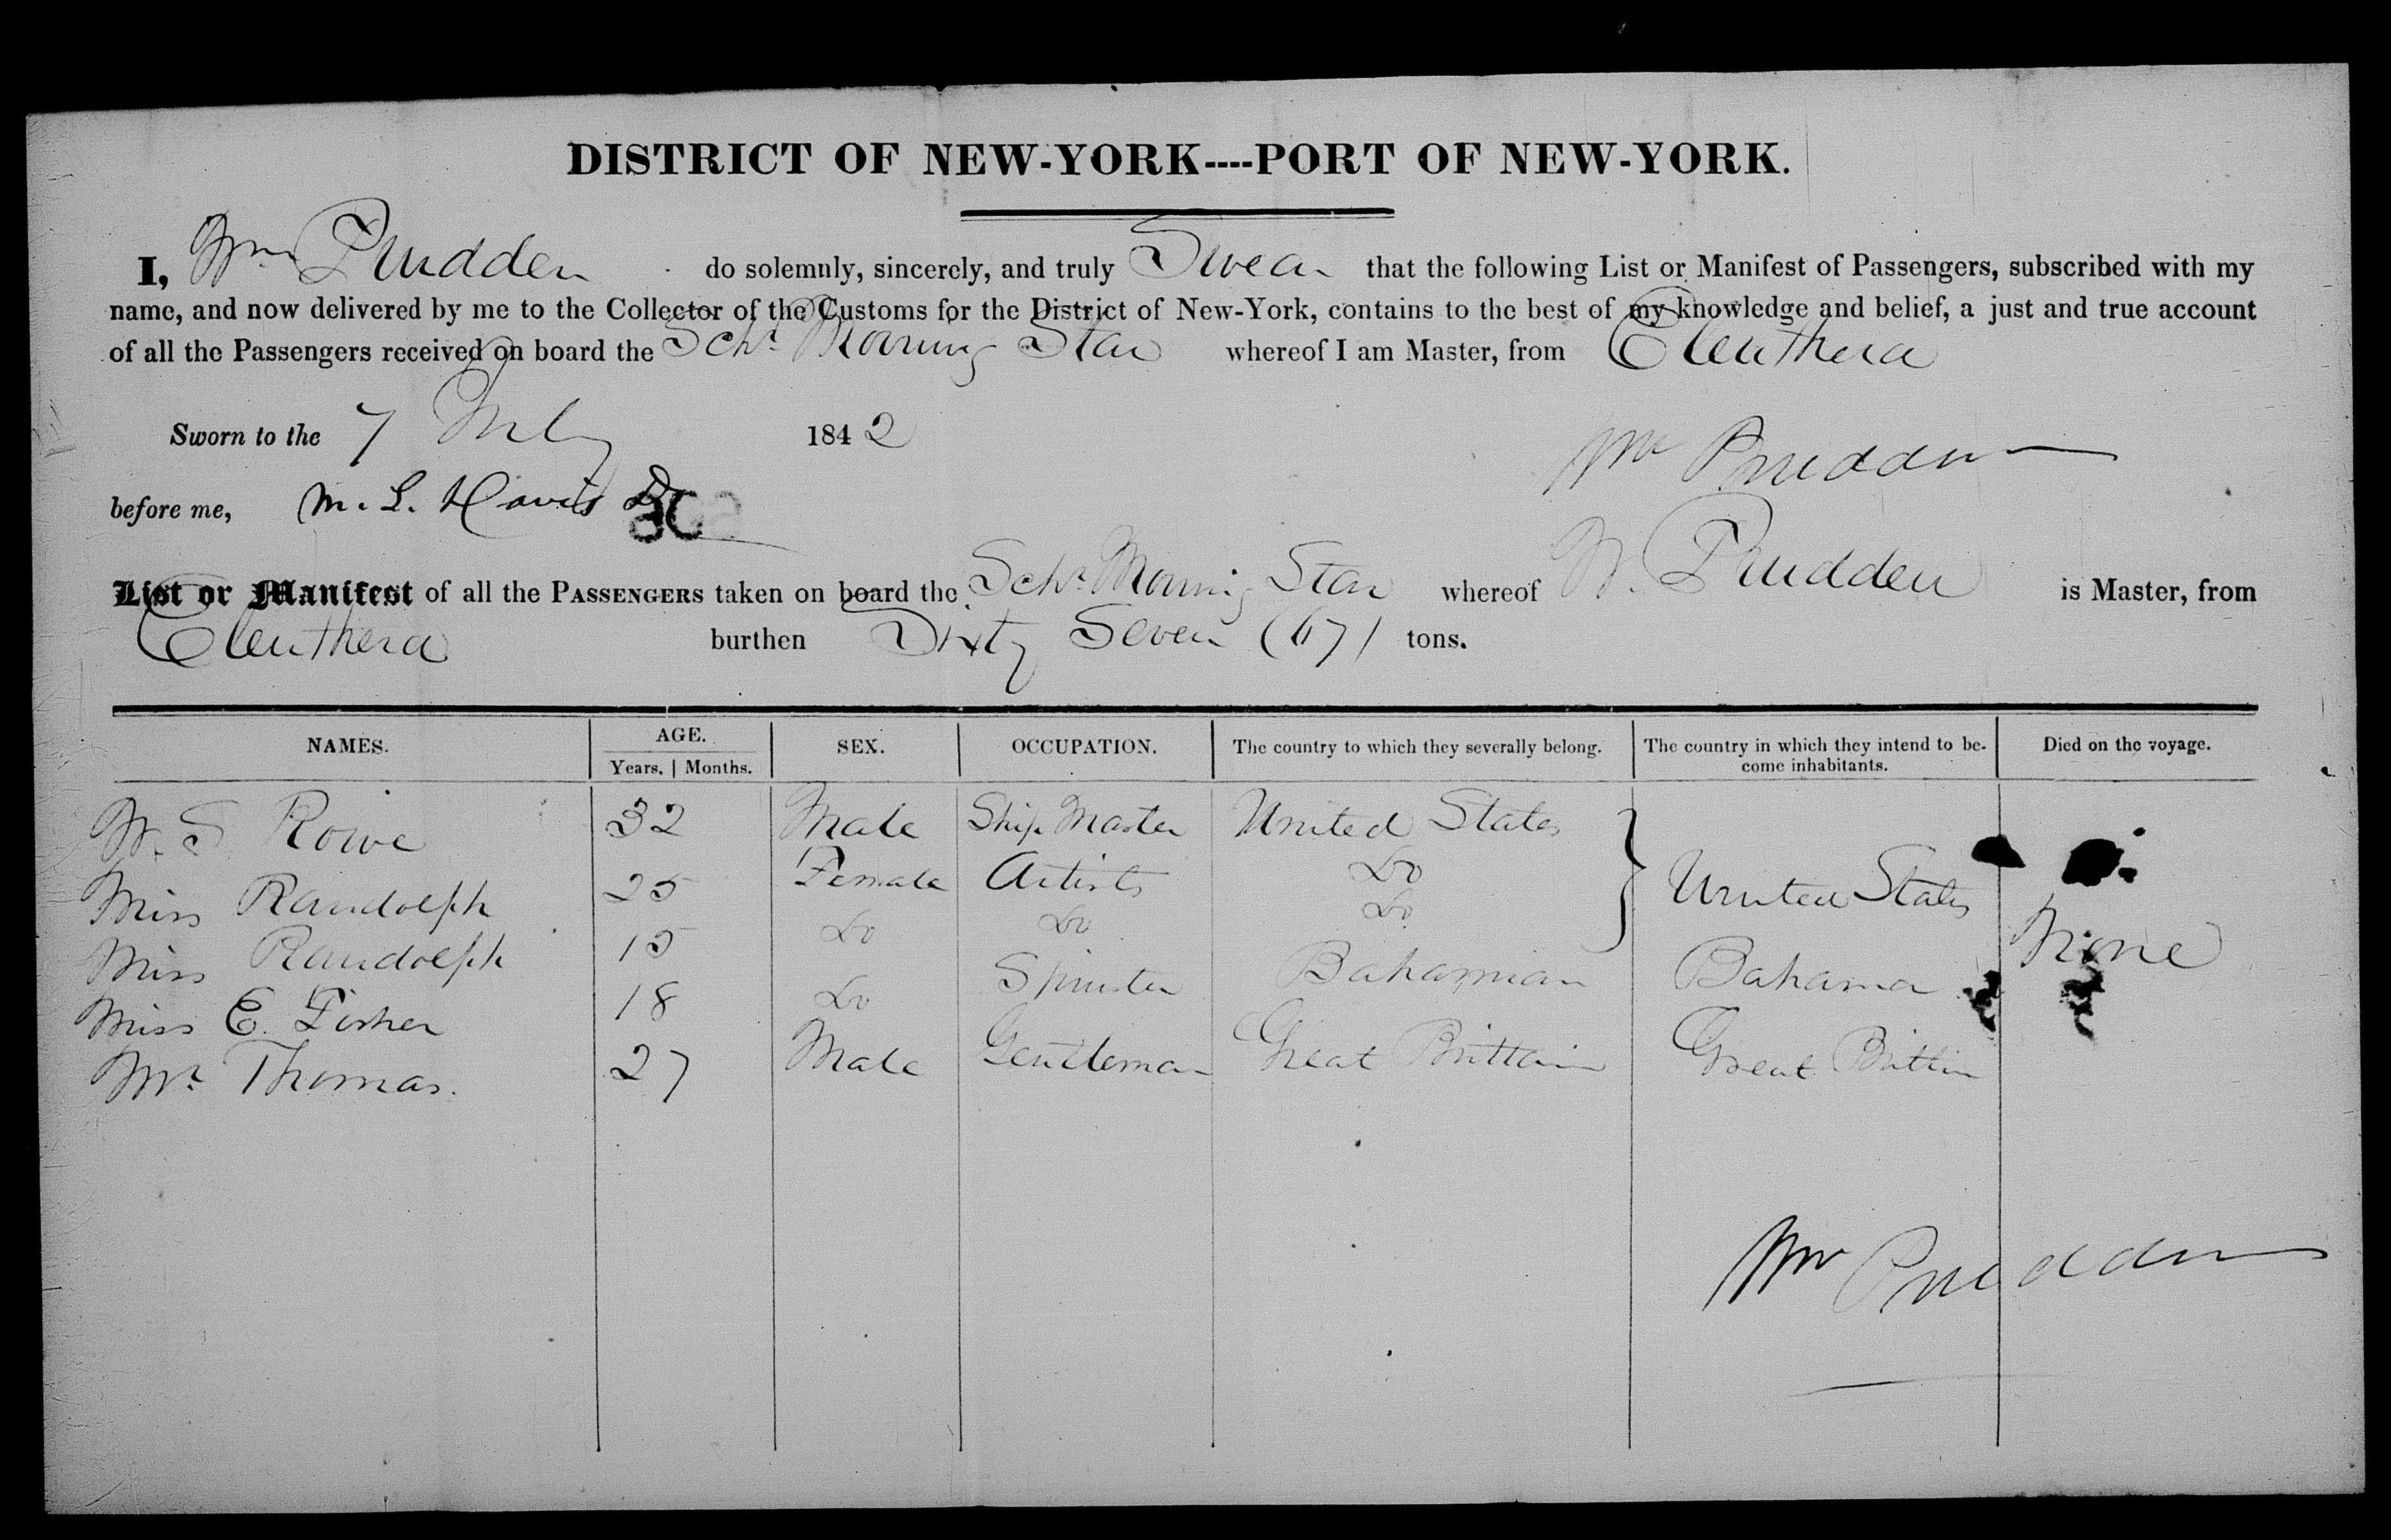 DISTRICT OF NEW-YORK----PORT OF NEW-YORK.
I, Wm Prudden do solemnly, sincerely, and truly Swear that the following List or Manifest of Passengers, subscribed with my
name, and now delivered by me to the Collector of the Customs for the District of New-York, contains to the best of my knowledge and belief, a just and true account
of all the Passengers received on board the Schr Morning Star whereof I am Master, from Eleuthera
Sworn to the 7 July 1842
Wm Prudden
before me, M. L. Davis
List or Manifest of all the PASSENGERS taken on board the Schr Morning Star whereof W. Prudden is Master, from
Eleuthera burthen Sixty Seven (67) tons.
NAMES. AGE. SEX. OCCUPATION. The country to which they severally belong. The country in which they intend to be- Died on the voyage.
Years. | Months. come inhabitants.
W. S. Rowe 32 Male Ship Master United States
Miss Randolph 25 Female Artists Do United States
Miss Randolph 15 Do Do Do None
Miss E. Fisher 18 Do Spinster Bahamian Bahama
Mr Thomas. 27 Male Gentleman Great Brittain Great Brittain
Wm Prudden